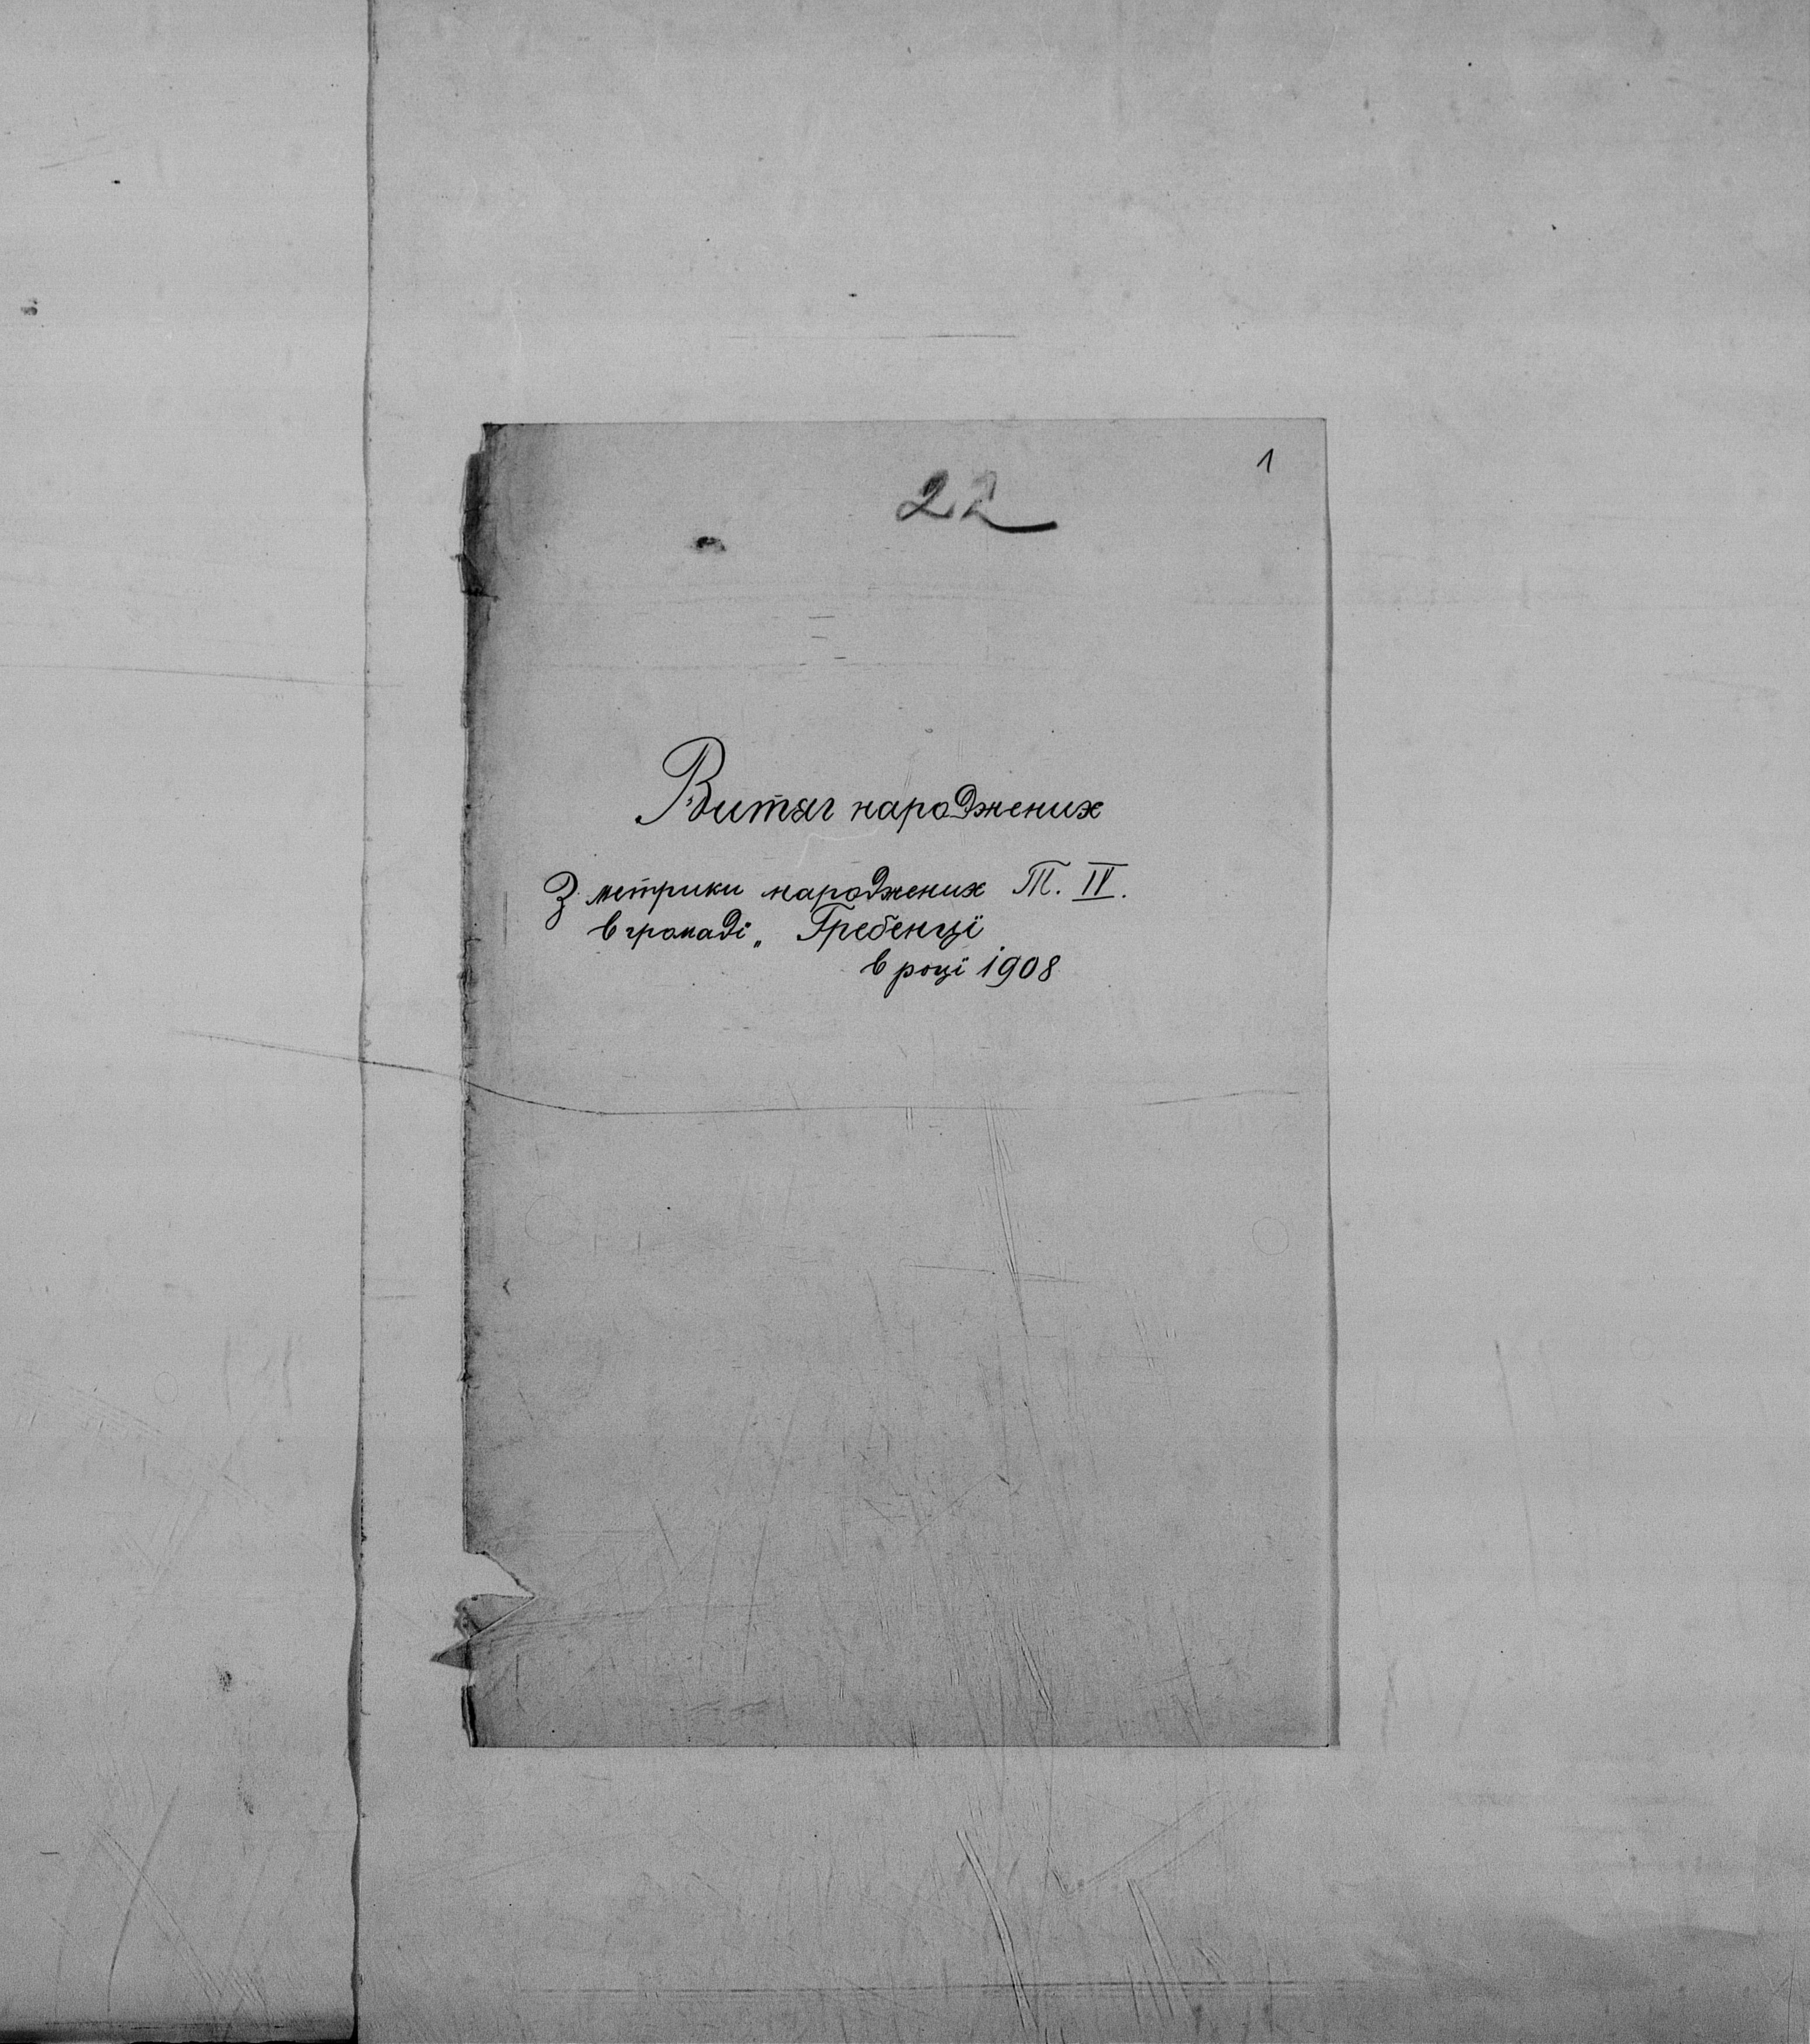 1
22
Витяг народжених
З метрики народжених Т. IV.
в громаді „ Гребенцї
в році 1908